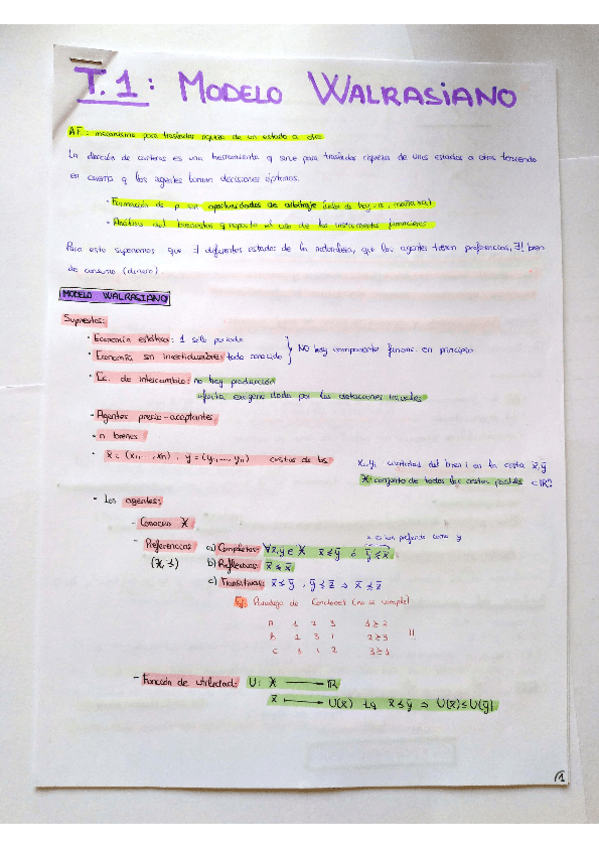 T.1: MODELO WALRASIANO
AF: mecanismo para trasladar riqueza de un estado a otro
La elección de carteras es una herramienta q sirve para trasladar riqueza de unos estados a otros teniendo
en cuenta q los agentes toman decisiones óptimas.
· Formación de p sin oportunidades de arbitraje
· Análisis del bienestar q reporta el uso de los instrumentos financieros
Para esto suponemos que ∃ diferentes estados de la naturaleza, que los agentes tienen preferencias, ∃! bien
de consumo (dinero).
MODELO WALRASIANO
Supuestos:
· Economía estática: 1 sólo periodo
· Economía sin incertidumbre: todo conocido
NO hay componente financ. en principio
· Ec. de intercambio: no hay producción
oferta exógena dada por las dotaciones iniciales
· Agentes precio-aceptantes
· n bienes
· x̄ = (x₁, ... xₙ), ȳ = (y₁, ... yₙ) cestas de bs
xᵢ, yᵢ cantidad del bien i en la cesta x̄, ȳ
X conjunto de todas las cestas posibles ⊂ ℝⁿ
· Los agentes:
- Conocen X
- Preferencias
(X, ≤)
x es tan preferido como y
a) Completas: ∀x̄,ȳ ∈ X x̄ ≤ ȳ ó ȳ ≤ x̄
b) Reflexivas: x̄ ≤ x̄
c) Transitivas: x̄ ≤ ȳ, ȳ ≤ z̄ ⇒ x̄ ≤ z̄
Paradoja de Condorcet (no se cumple)
A 1 2 3 1 ≥ 2
B 2 3 1 2 ≥ 3 !!
C 3 1 2 3 ≥ 1
- Función de utilidad: U: X → ℝ
x̄ → U(x̄) tq x̄ ≤ ȳ ⇒ U(x̄) ≤ U(ȳ)
1